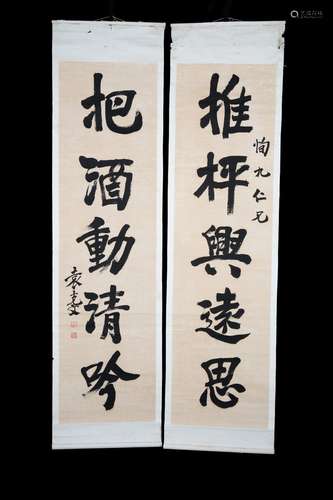 推枰興遠思
恂九仁兄
把酒動清吟
袁克文